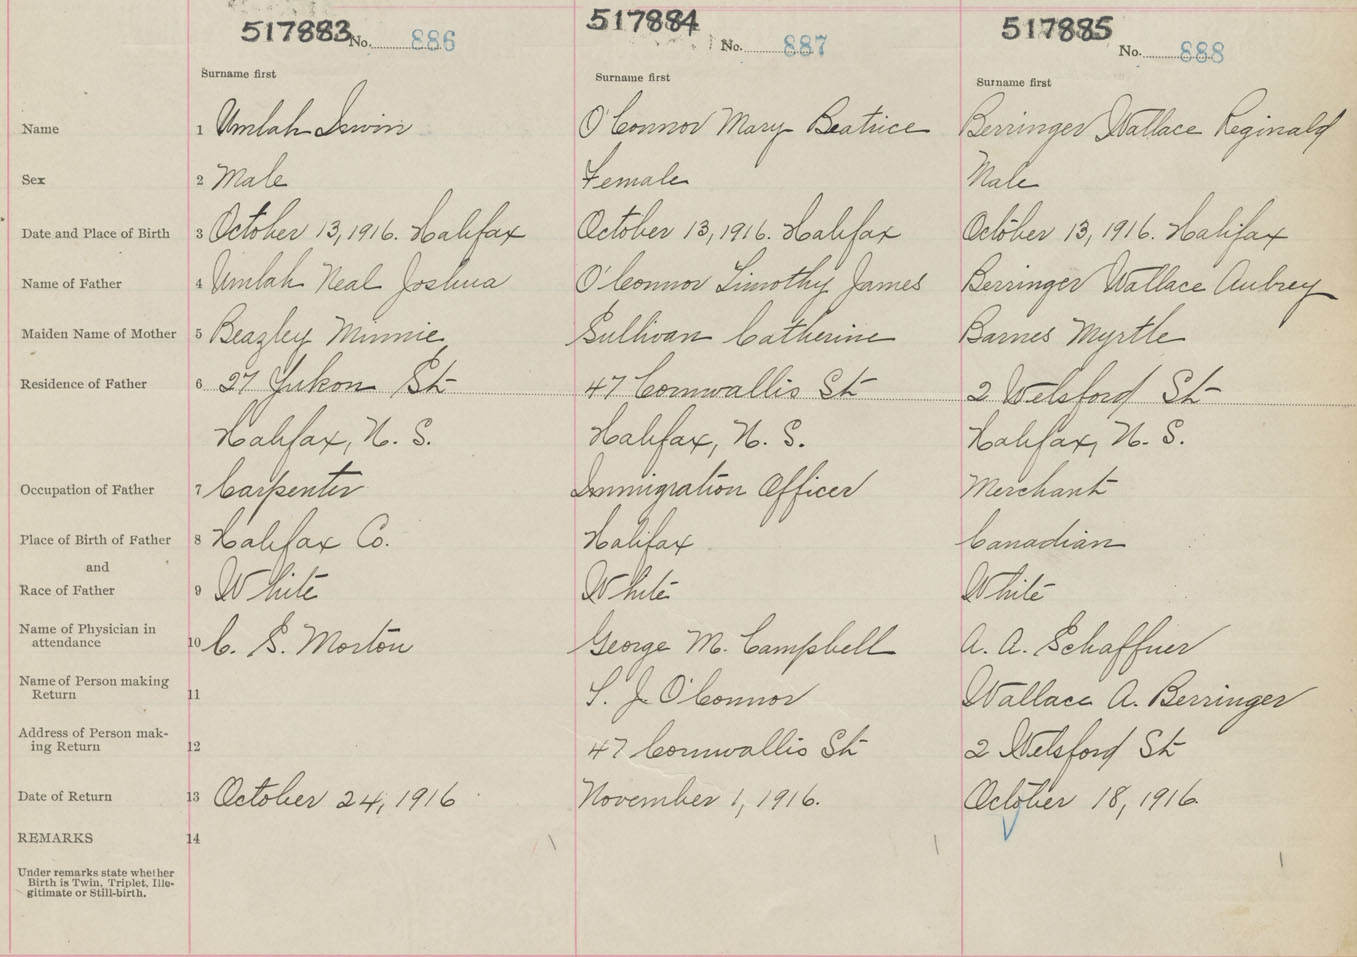 517883 No. 886 517884 No. 887 517885 No. 888
Surname first Surname first Surname first
Name 1 Umlah Irwin O'Connor Mary Beatrice Berringer Wallace Reginald
Sex 2 Male Female Male
Date and Place of Birth 3 October 13, 1916. Halifax October 13, 1916. Halifax October 13, 1916. Halifax
Name of Father 4 Umlah Neal Joshua O'Connor Timothy James Berringer Wallace Aubrey
Maiden Name of Mother 5 Beazley Minnie Sullivan Catherine Barnes Myrtle
Residence of Father 6 27 Yukon St 47 Cornwallis St 2 Welsford St
Halifax, N. S. Halifax, N. S. Halifax, N. S.
Occupation of Father 7 Carpenter Immigration Officer Merchant
Place of Birth of Father 8 Halifax Co. Halifax Canadian
and
Race of Father 9 White White White
Name of Physician in
attendance 10 C. S. Morton George M. Campbell A. A. Schaffner
Name of Person making
Return 11 T. J. O'Connor Wallace A. Berringer
Address of Person mak-
ing Return 12 47 Cornwallis St 2 Welsford St
Date of Return 13 October 24, 1916 November 1, 1916. October 18, 1916.
REMARKS 14
Under remarks state whether
Birth is Twin, Triplet, Ille-
gitimate or Still-birth.